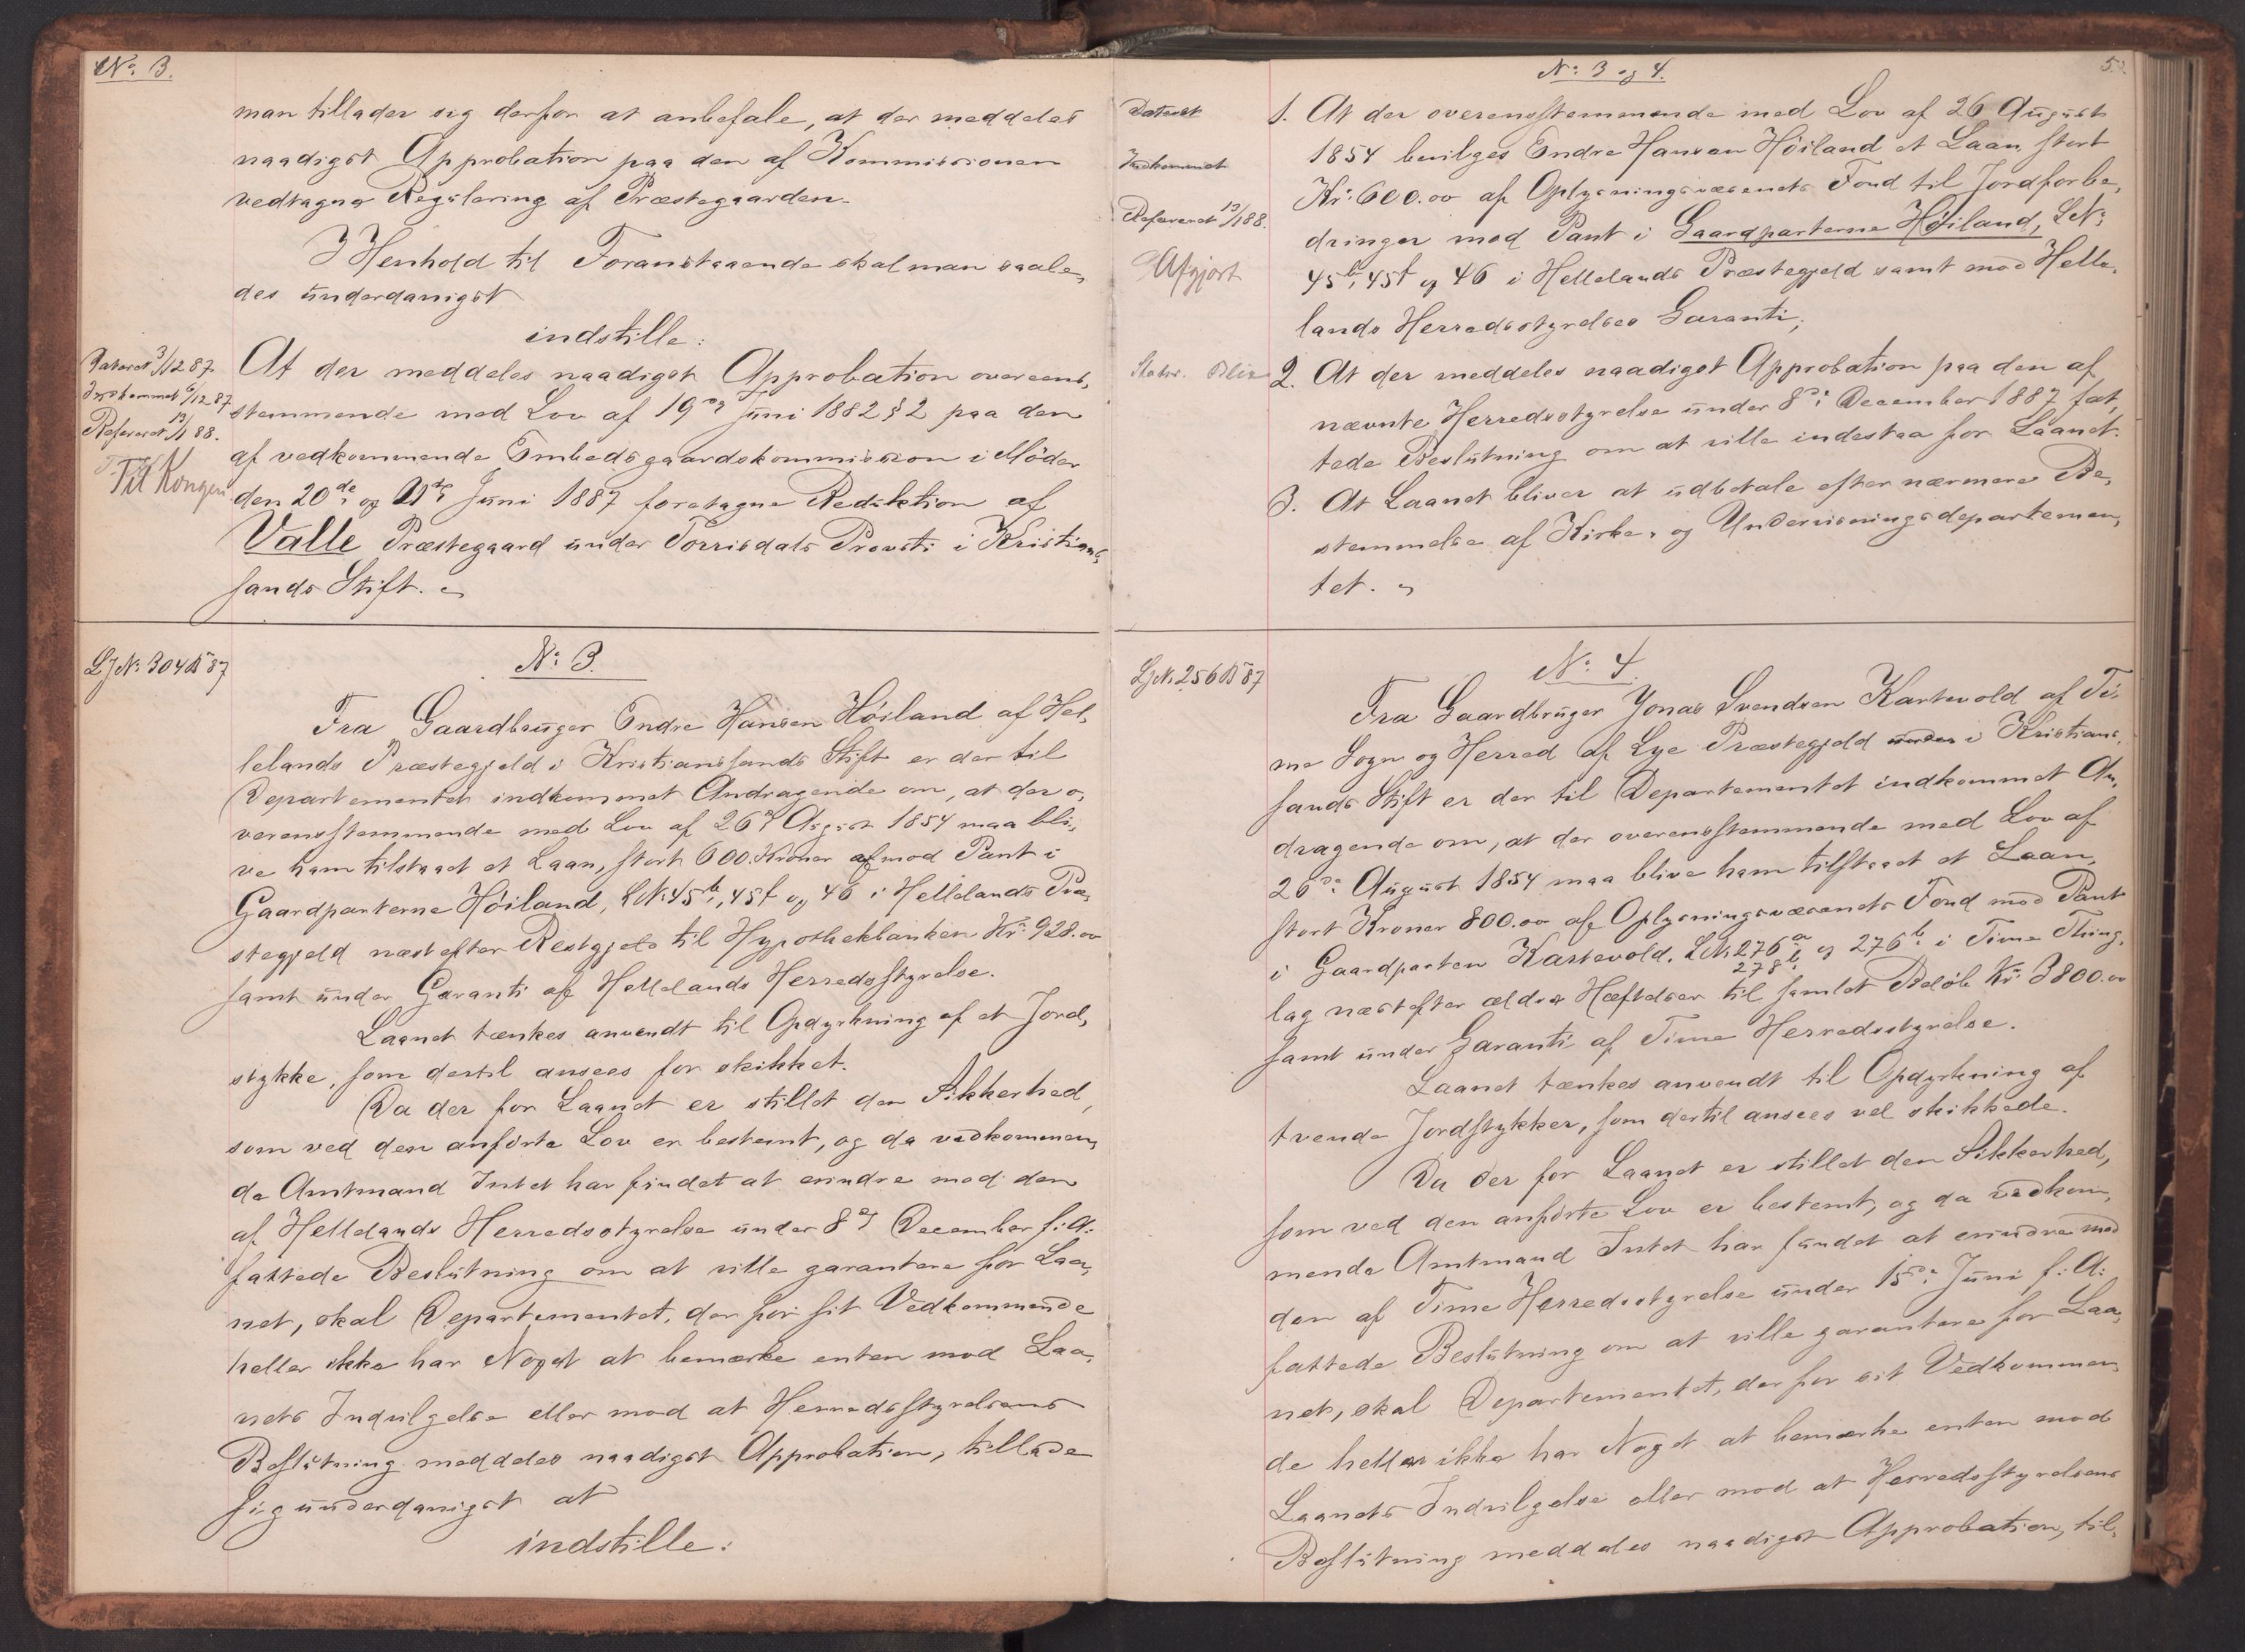 No. 3.
man tillader sig derfor at anbefale, at der meddeles
naadigst Approbation paa den af Kommissionen
vedtagne Regulering af Præstegaarden.
I Henhold til Foranstaaende skal man saale,
des underdanigst
indstille:
Dateret 3/12 87.
Indkommet 6/12 87
Refereret 13/1 88.
Til Kongen
At der meddeles naadigst Approbation overeens,
stemmende med Lov af 19de Juni 1882 § 2 paa den
af vedkommende Embedsgaardskommission i Möder
den 20de og 21de Juni 1887 foretagne Reduktion af
Valle Præstegaard under Torrisdals Provsti i Kristians,
sands Stift.
LJNo. 304 B 87
No. 3.
Fra Gaardbruger Endre Hansen Höiland af Hel,
lelands Præstegjeld i Kristianssands Stift er der til
Departementet indkommet Andragende om, at der o,
verensstemmende med Lov af 26de August 1854 maa bli,
ve ham tilstaaet et Laan, stort 600. Kroner mod Pant i
Gaardparterne Höiland, LNo. 45b, 45f og 46 i Hellelands Præ,
stegjeld næst efter Restgjeld til Hypothekbanken Kr. 928.00
samt under Garanti af Hellelands Herredsstyrelse.
Laanet tænkes anvendt til Opdyrkning af et Jord,
stykke, som dertil ansees for skikket.
Da der for Laanet er stillet den Sikkerhed,
som ved den anförte Lov er bestemt, og da vedkommen,
de Amtmand Intet har fundet at erindre mod den
af Hellelands Herredsstyrelse under 8de December f. A.
fattede Beslutning om at ville garantere for Laa,
net, skal Departementet, der for sit Vedkommende
heller ikke har Noget at bemærke enten mod Laa,
nets Indvilgelse eller mod at Herredsstyrelsens
Beslutning meddeles naadigst Approbation, tillade
sig underdanigst at
indstille:
No. 3 og 4.
5.
Dateret
Indkommet
Refereret 13/1 88.
Afgjort
1. At der overensstemmende med Lov af 26 August
1854 bevilges Endre Hansen Höiland et Laan stort
Kr. 600.00 af Oplysningsvæsenets Fond til Jordforbe,
dringer mod Pant i Gaardparterne Höiland, LNo.
45b, 45f og 46 i Hellelands Præstegjeld samt mod Helle,
lands Herredsstyrelses Garanti;
2. At der meddeles naadigst Approbation paa den af
nævnte Herredsstyrelse under 8de December 1887 fat,
tede Beslutning om at ville indestaa for Laanet.
3. At Laanet bliver at udbetale efter nærmere Be,
stemmelse af Kirke- og Undervisningsdepartemen,
tet.
LJNo. 256 B 87
No. 4.
Fra Gaardbruger Jonas Svendsen Kartevold af Ti,
me Sogn og Herred af Lye Præstegjeld under i Kristians,
sands Stift er der til Departementet indkommet An,
dragende om, at der overensstemmende med Lov af
26de August 1854 maa blive ham tilstaaet et Laan,
stort Kroner 800.00 af Oplysningsvæsenets Fond mod Pant
i Gaardparten Kartevold, LNo. 276a og 276b i Time Thing,
278b
lag næst efter ældre Hæftelser til samlet Belöb Kr. 3800.00
samt under Garanti af Time Herredsstyrelse.
Laanet tænkes anvendt til Opdyrkning af
tvende Jordstykker, som dertil ansees vel skikkede.
Da der for Laanet er stillet den Sikkerhed,
som ved den anförte Lov er bestemt, og da vedkom,
mende Amtmand Intet har fundet at erindre mod
den af Time Herredsstyrelse under 15de Juni f. A.
fattede Beslutning om at ville garantere for Laa,
net, skal Departementet, der for sit Vedkommen,
de heller ikke har Noget at bemærke enten mod
Laanets Indvilgelse eller mod at Herredsstyrelsens
Beslutning meddeles naadigst Approbation, til,